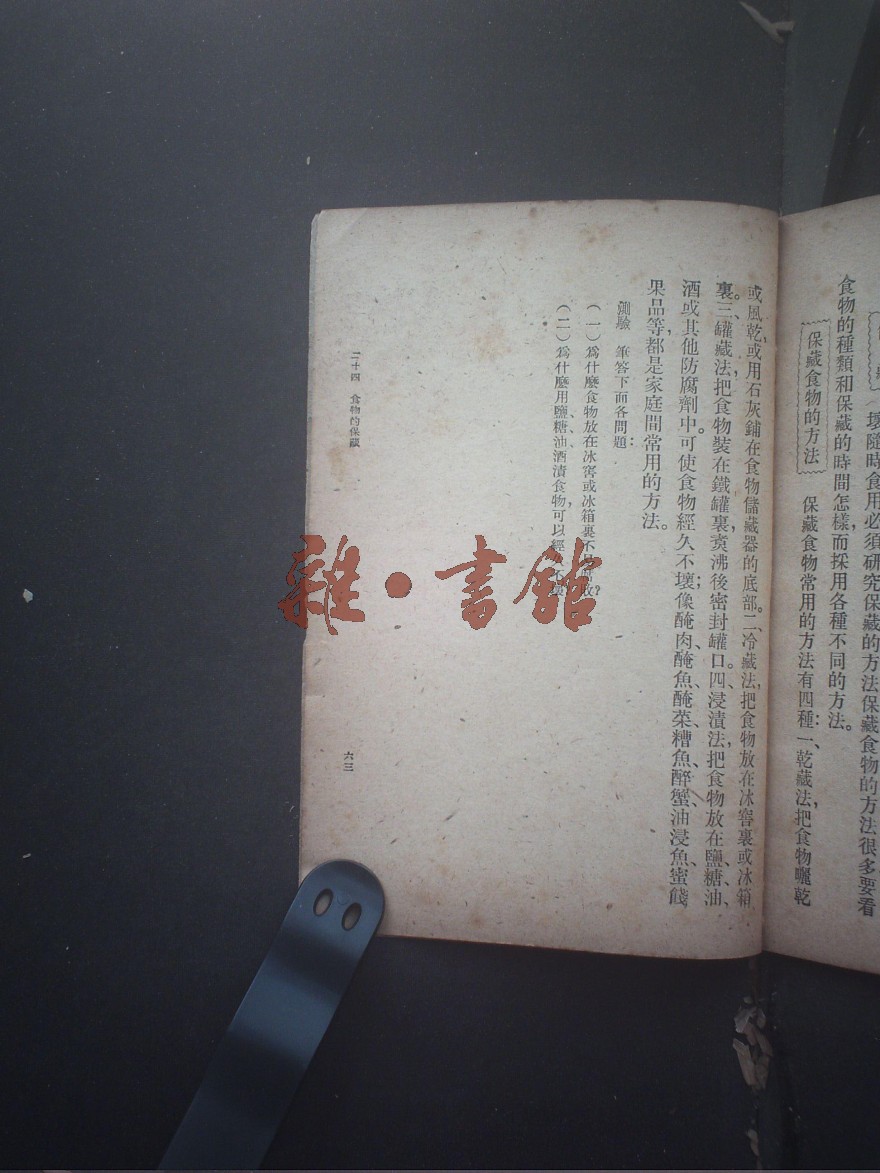 壞隨時食用必須研究保藏的方法保藏食物的方法很多要看
食物的種類和保藏的時間怎樣而採用各種不同的方法。
保藏食物的方法
保藏食物常用的方法有四種：一、乾藏法，把食物曬乾
或風乾，或用石灰鋪在食物儲藏器的底部。二、冷藏法，把食物放在冰窖裏或冰箱
裏。三、罐藏法，把食物裝在鐵罐裏，煑沸後密封罐口。四、浸漬法，把食物放在鹽、糖、油、
酒或其他防腐劑中。可使食物經久不壞；像醃肉、醃魚、醃菜、糟魚、醉蟹、油浸魚、蜜餞
果品等，都是家庭間常用的方法。
測驗　筆答下面各問題：
（一）爲什麼食物放在冰窖或冰箱裏不
（二）爲什麼用鹽、糖、油、酒漬食物，可以經
二十四　食物的保藏
六三
雜·書館